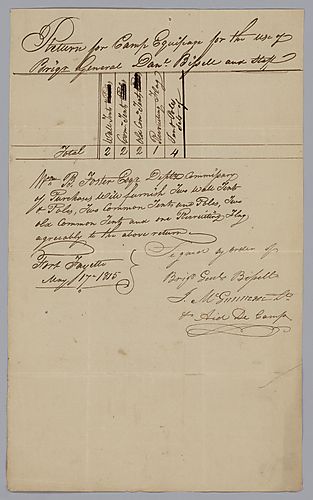 Return for Camp Equipage for the Use of
Brigr General Danl Bissell and Staff
Wall Tents
Common Tents
Old Comn Tents
Recruiting Flag
Total 2 2 2 1 4
Wm B. Foster Esqr Depty Commissary
of Purchases Will furnish Two Wall Tents
& Poles, Two Common Tents and Poles, Two
old Common Tents and one Recruiting Flag
agreeably to the above return
Fort Fayette
May 17th 1815
Signed by order of
Brigr Genl Bissell
& Aid De Camp